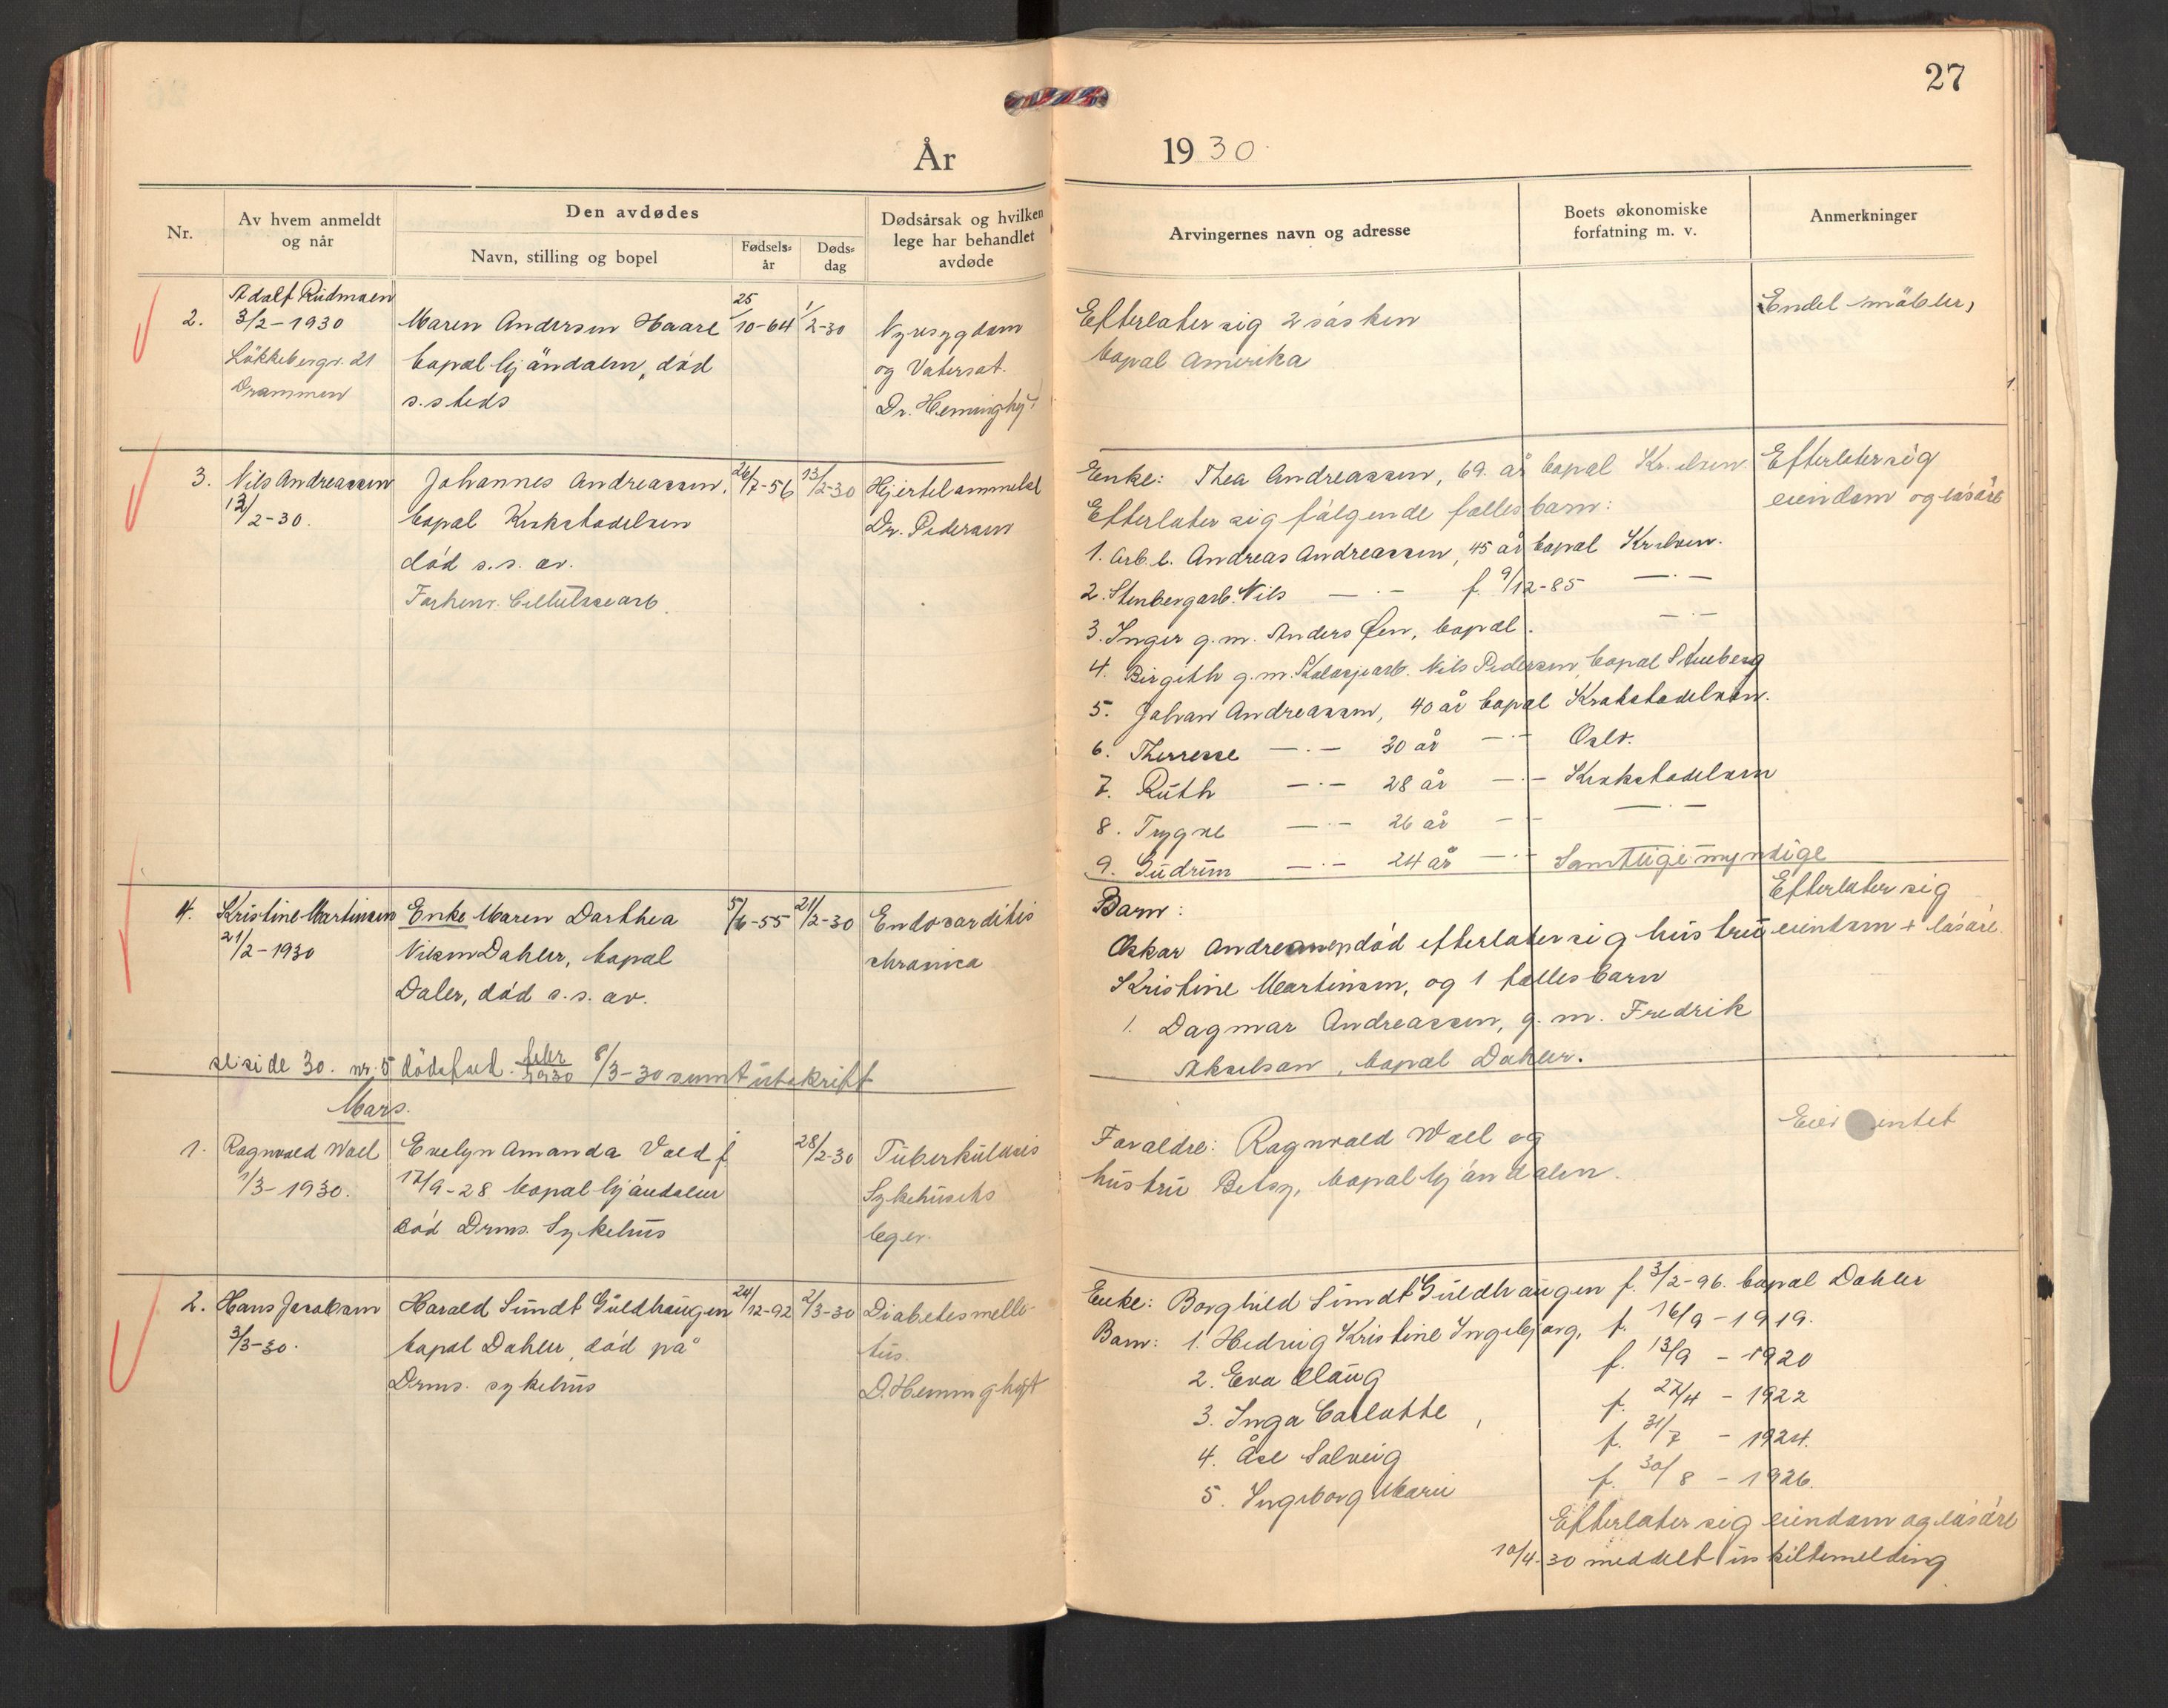 27
År 1930.
Nr.
Av hvem anmeldt og når
Den avdødes
Navn, stilling og bopel
Fødsels-år
Døds-dag
Dødsårsak og hvilken lege har behandlet avdøde
Arvingernes navn og adresse
Boets økonomiske forfatning m. v.
Anmerkninger
2.
Adolf Rudmoen
3/2-1930
Løkkebergr. 21
Drammen
Maren Andersen Haare
bopæl Mjöndalen, död
s. steds
25/10-64
1/2-30
Nyresygdom
og Vatersot.
Dr. Heminghyt
Efterlater sig 2 søsken
bopæl Amerika
Endel möbler,
3.
Nils Andreassen
13/2-30.
Johannes Andreassen,
bopæl Krokstadelven
död s.s. av.
Forhenv. Cellulosearb.
26/7-56
13/2-30
Hjertelammelse
Dr. Pedersen
Enke: Thea Andreassen, 69. år bopæl Kr. elven
Efterlater sig følgende felles barn:
1. Arb. b. Andreas Andreassen, 45 år bopæl Kr.elven.
2. Stenbergarb. Nils —·— f. 9/12-85 —·—
3. Inger g.m. Anders Øen, bopæl. —·—
4. Birgith g.m. Nils Pedersen, bopæl Stenberg
5. Johan Andreassen, 40 år bopæl Krokstadelven.
6. Therresse —·— 30 år —·— Oslo.
7. Ruth —·— 28 år —·— Krokstadelven
8. Trygve —·— 26 år —·— —·—
9. Gudrun —·— 24 år —·— Samtlige myndige
Efterlater sig
eiendom og løsøre
4.
Kristine Martinsen
21/2-1930
Enke Maren Dorthea
Nilsen Dahler, bopæl
Daler, död s.s. av.
5/6-55
21/2-30
Endocarditis
chronica
Barn:
Oskar Andreassen død efterlater sig hustru
Kristine Martinsen, og 1 felles barn
1. Dagmar Andreassen, g.m. Fredrik
Akselsen, bopæl Dahler.
Efterlater sig
eiendom + løsøre.
se side 30. nr. 5 dödsfæd. febr 1930 8/3-30 sendt utskrift
Mars.
1.
Ragnvald Woll
1/3-1930.
Evelyn Amanda Vold f
17/9-28 bopæl Mjöndalen
död Drms. Sykehus
28/2-30
Tuberkulosis
Sykehusets
leger.
Foreldre: Ragnvald Woll og
hustru Betsy, bopæl Mjöndalen.
Eier intet
2.
Hans Jacobsen
3/3-30.
Harald Sundt Guldhaugen
bopæl Dahler, död på
Drms. sykehus
24/12-92
2/3-30
Diabetes melli-
tus.
D. Heminghyt
Enke: Borghild Sundt Guldhaugen f. 3/2-96. bopæl Dahler
Barn: 1. Hedvig Kristine Ingebjørg, f. 16/9 - 1919.
2. Eva Olaug f. 13/9 - 1920
3. Inga Carlotte, f. 27/4 - 1922
4. Åse Solveig f. 31/7 - 1924.
5. Ingeborg Marie f. 30/8 - 1926.
Efterlater sig eiendom og løsøre
10/4-30 meddelt uskiftemelding